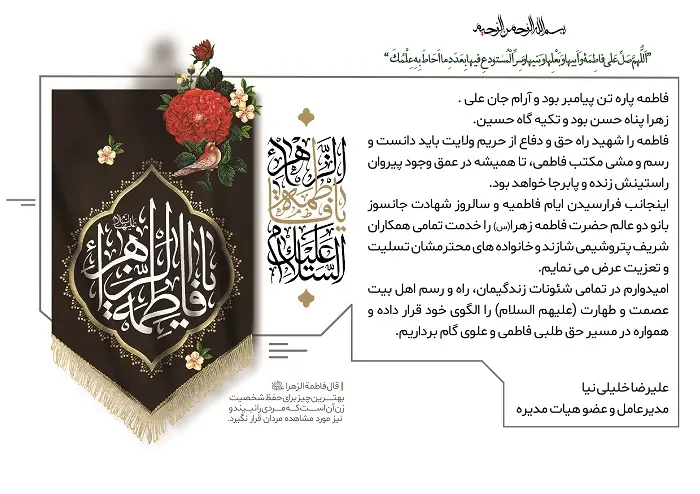 بسم الله الرحمن الرحیم
“اَللّهُمَّ صَلِّ عَلى فاطِمَةَ وَ اَبيها وَ بَعْلِها وَ بَنيها وَ سِرِّ الْمُسْتَوْدَعِ فيها بِعَدَدِ ما اَحاطَ بِهِ عِلْمُكَ”
فاطمه پاره تن پیامبر بود و آرام جان علی .
زهرا پناه حسن بود و تکیه گاه حسین.
فاطمه را شهید راه حق و دفاع از حریم ولایت باید دانست و
رسم و مشی مکتب فاطمی، تا همیشه در عمق وجود پیروان
راستینش زنده و پابرجا خواهد بود.
اینجانب فرارسیدن ایام فاطمیه و سالروز شهادت جانسوز
بانو دو عالم حضرت فاطمه زهرا(س) را خدمت تمامی همکاران
شریف پتروشیمی شازند و خانواده های محترمشان تسلیت
و تعزیت عرض می نمایم.
امیدوارم در تمامی شئونات زندگیمان، راه و رسم اهل بیت
عصمت و طهارت (علیهم السلام) را الگوی خود قرار داده و
همواره در مسیر حق طلبی فاطمی و علوی گام برداریم.
علیرضا خلیلی نیا
مدیرعامل و عضو هیات مدیره
السلام علیک یا فاطمة الزهراء
یا فاطمة الزهراء
قال فاطمة الزهرا
بهترین چیز برای حفظ شخصیت
زن آن است که مردی را نبیند و
نیز مورد مشاهده مردان قرار نگیرد.